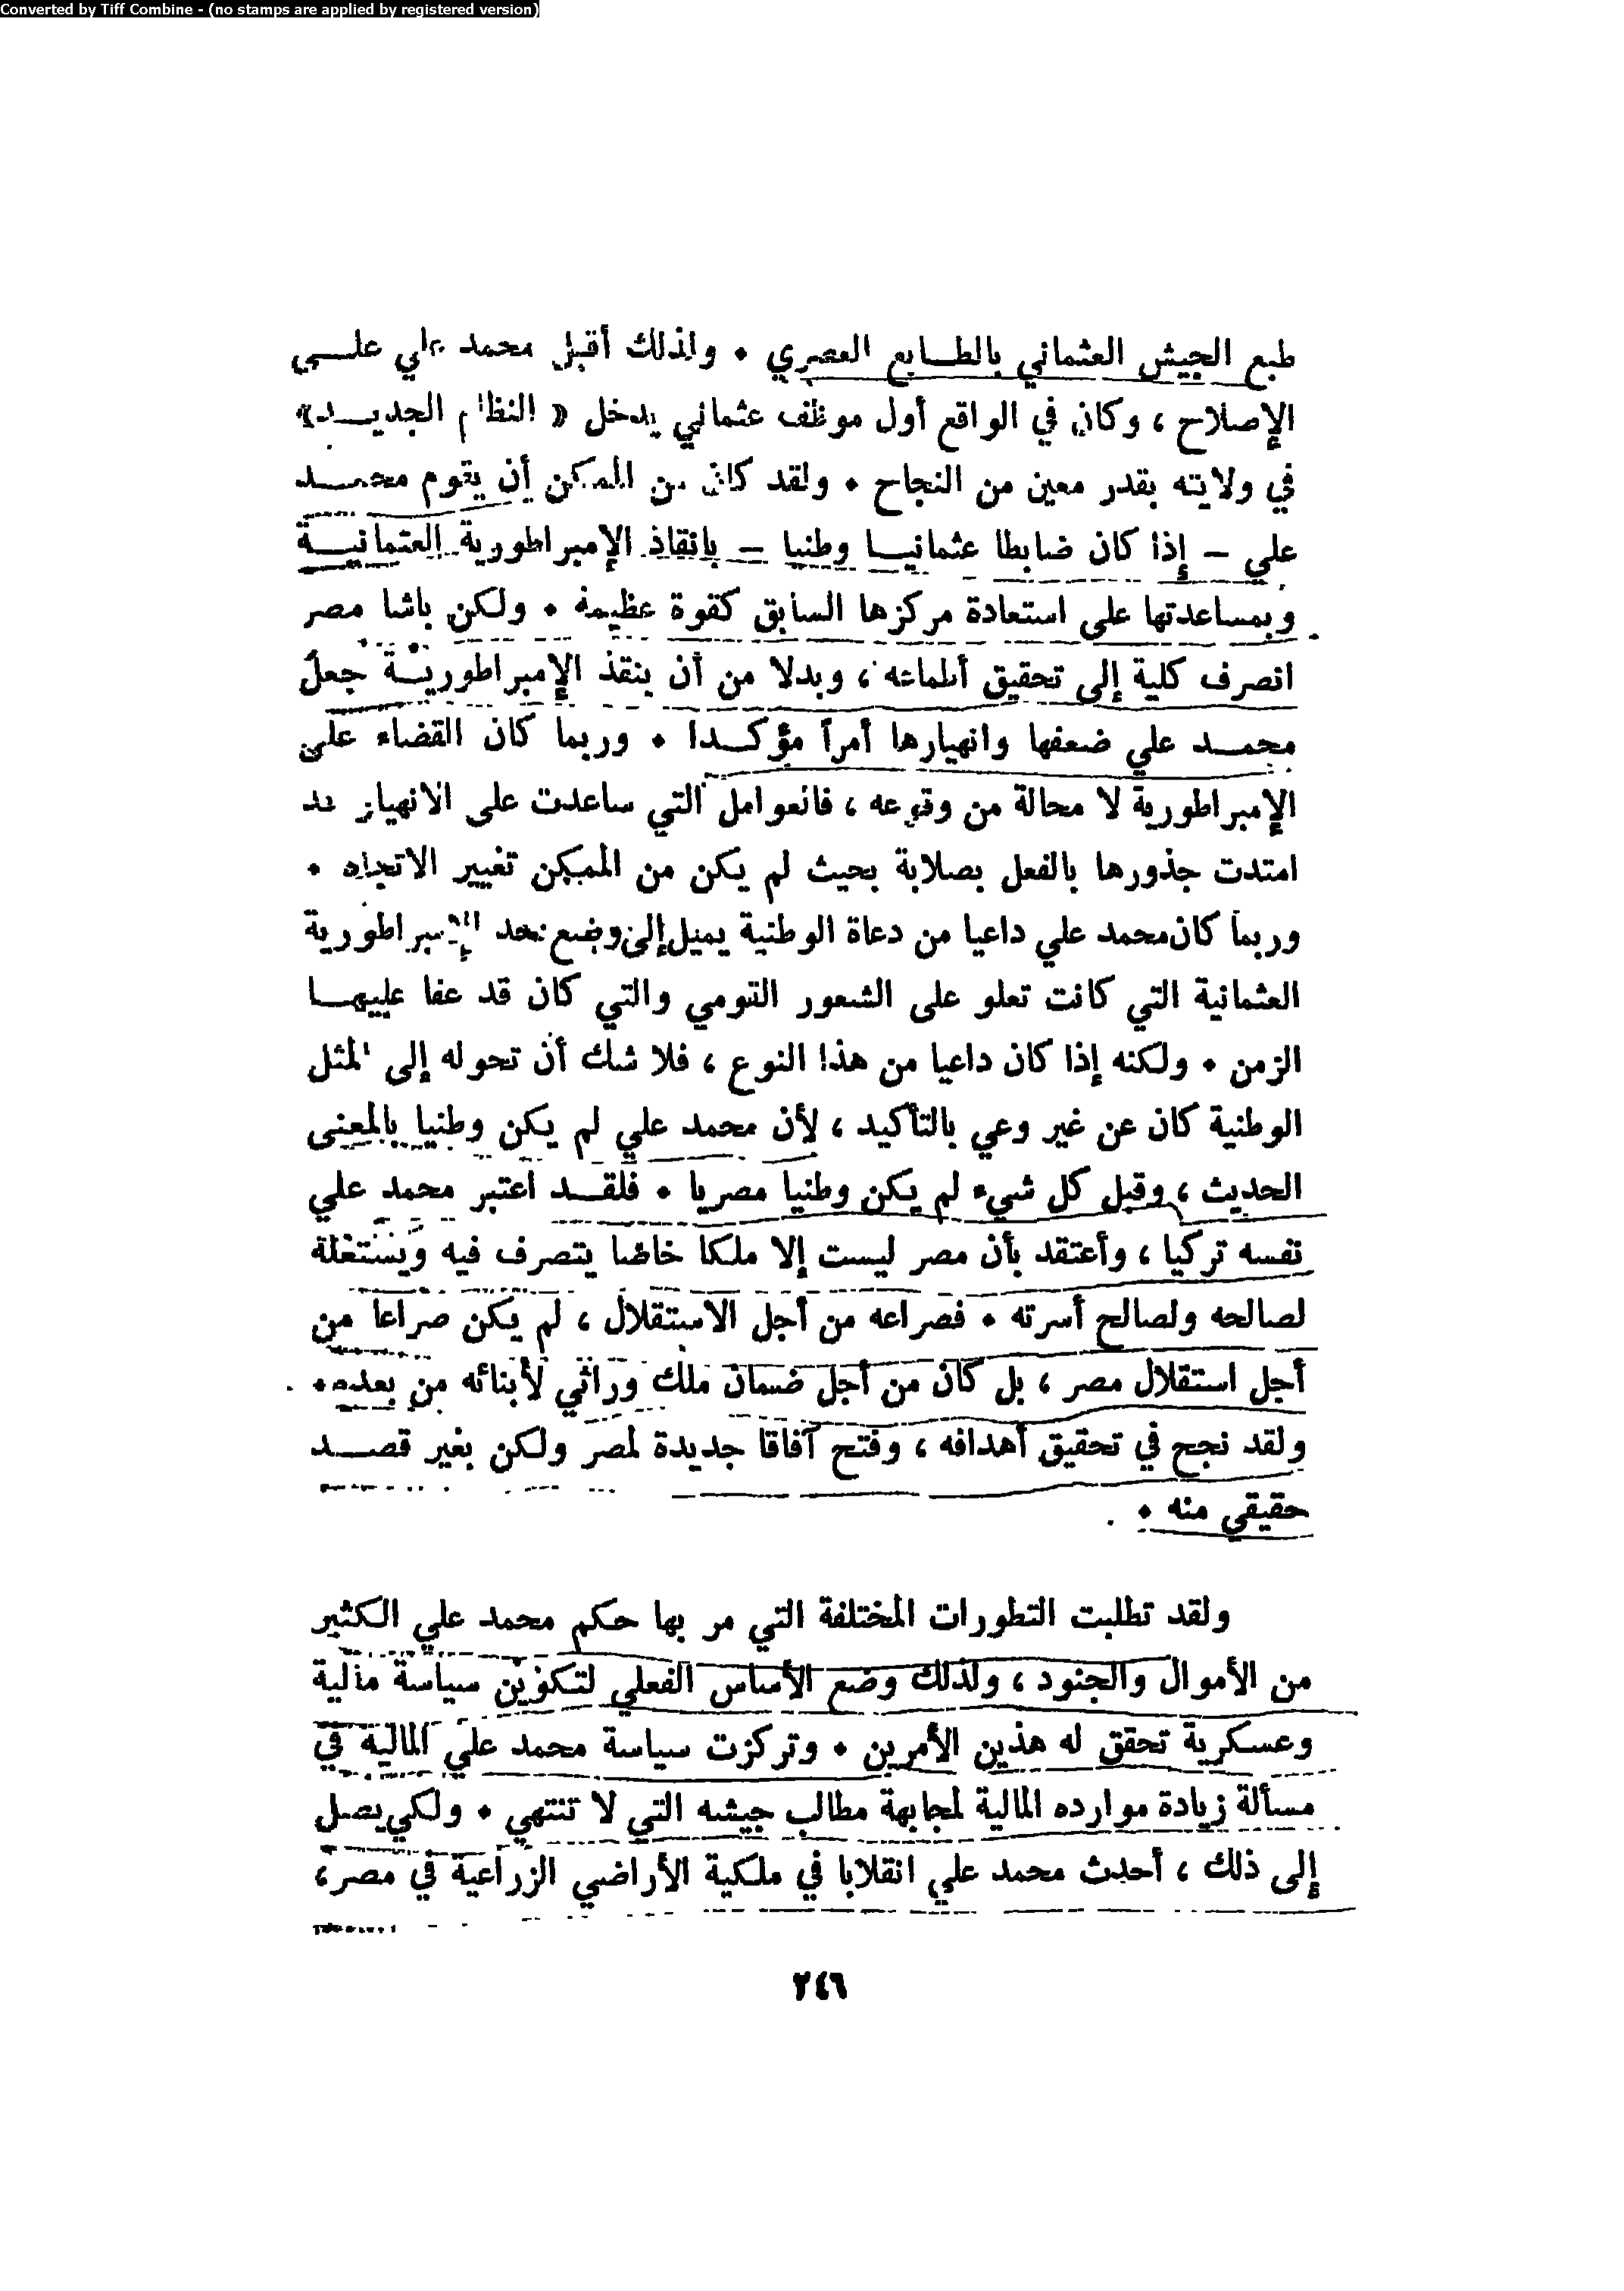 Converted by Tiff Combine - (no stamps are applied by registered version)
طبع الجيش العثماني بالطـــابع العصري ٠ ولذلك أقبل محمد علي علـــى
الإصلاح ، وكان في الواقع أول موظف عثماني يدخل « النظام الجديـــد»
في ولايته بقدر معين من النجاح ٠ ولقد كان من الممكن أن يقوم محمـــد
علي – إذا كان ضابطا عثمانيـــا وطنيا – بانقاذ الإمبراطورية العثمانيـــة
وبمساعدتها على استعادة مركزها السابق كقوة عظيمة ٠ ولكن باشا مصر
انصرف كلية إلى تحقيق أطماعه ، وبدلا من أن ينقذ الإمبراطوريـــة جعل
محمـــد علي ضعفها وانهيارها أمراً مؤكـــدا ٠ وربما كان القضاء على
الإمبراطورية لا محالة من وقوعه ، فالعوامل التي ساعدت على الانهيار قد
امتدت جذورها بالفعل بصلابة بحيث لم يكن من الممكن تغيير الاتجاه ٠
وربما كان محمد علي داعيا من دعاة الوطنية يميل إلى وضع حد للإمبراطورية
العثمانية التي كانت تعلو على الشعور القومي والتي كان قد عفا عليهـــا
الزمن ٠ ولكنه إذا كان داعيا من هذا النوع ، فلا شك أن تحوله إلى المثل
الوطنية كان عن غير وعي بالتأكيد ، لأن محمد علي لم يكن وطنيا بالمعنى
الحديث ، وقبل كل شيء لم يكن وطنيا مصريا ٠ فلقـــد اعتبر محمد علي
نفسه تركيا ، وأعتقد بأن مصر ليست إلا ملكا خاصا يتصرف فيه ويستغلة
لصالحه ولصالح أسرته ٠ فصراعه من أجل الاستقلال ، لم يكن صراعا من
أجل استقلال مصر ، بل كان من أجل ضمان ملك وراثي لأبنائه من بعده ٠
ولقد نجح في تحقيق أهدافه ، وفتح آفاقا جديدة لمصر ولكن بغير قصـــد
حقيقي منه ٠
ولقد تطلبت التطورات المختلفة التي مر بها حكم محمد علي الكثير
من الأموال والجنود ، ولذلك وضع الأساس الفعلي لتكوين سياسة مالية
وعسكرية تحقق له هذين الأمرين ٠ وتركزت سياسة محمد علي المالية في
مسألة زيادة موارده المالية لمجابهة مطالب جيشه التي لا تنتهي ٠ ولكي يصل
إلى ذلك ، أحدث محمد علي انقلابا في ملكية الأراضي الزراعية في مصر،
٢٤٦